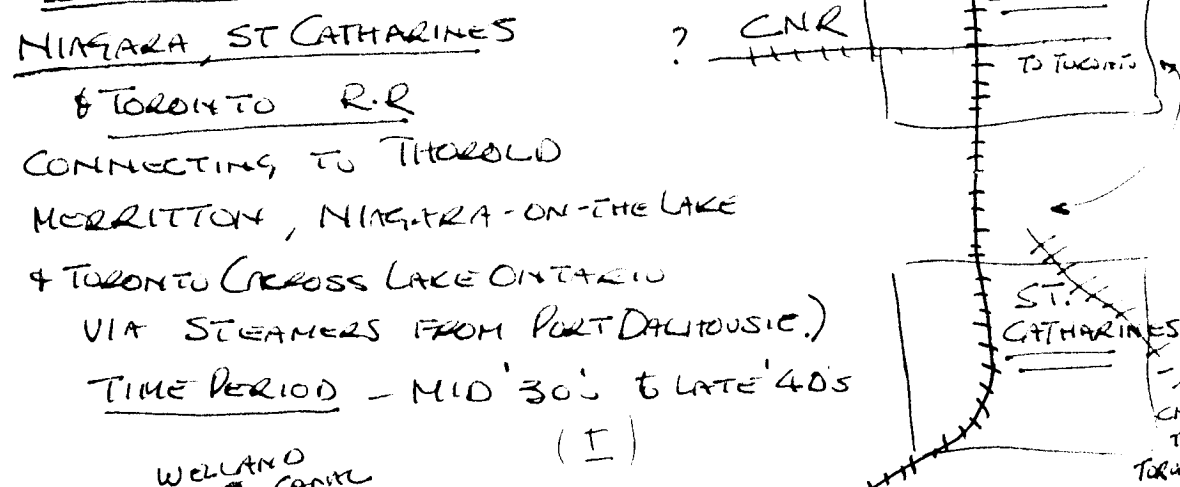 NIAGARA, ST CATHARINES
& TORONTO R.R
CONNECTING TO THOROLD
MERRITTON, NIAGARA-ON-THE LAKE
& TORONTO (ACROSS LAKE ONTARIO
VIA STEAMERS FROM PORT DALHOUSIE.)
TIME PERIOD - MID '30's to LATE '40's
(I)
WELLAND
CANAL
? CNR
TO TORONTO
ST.
CATHARINES